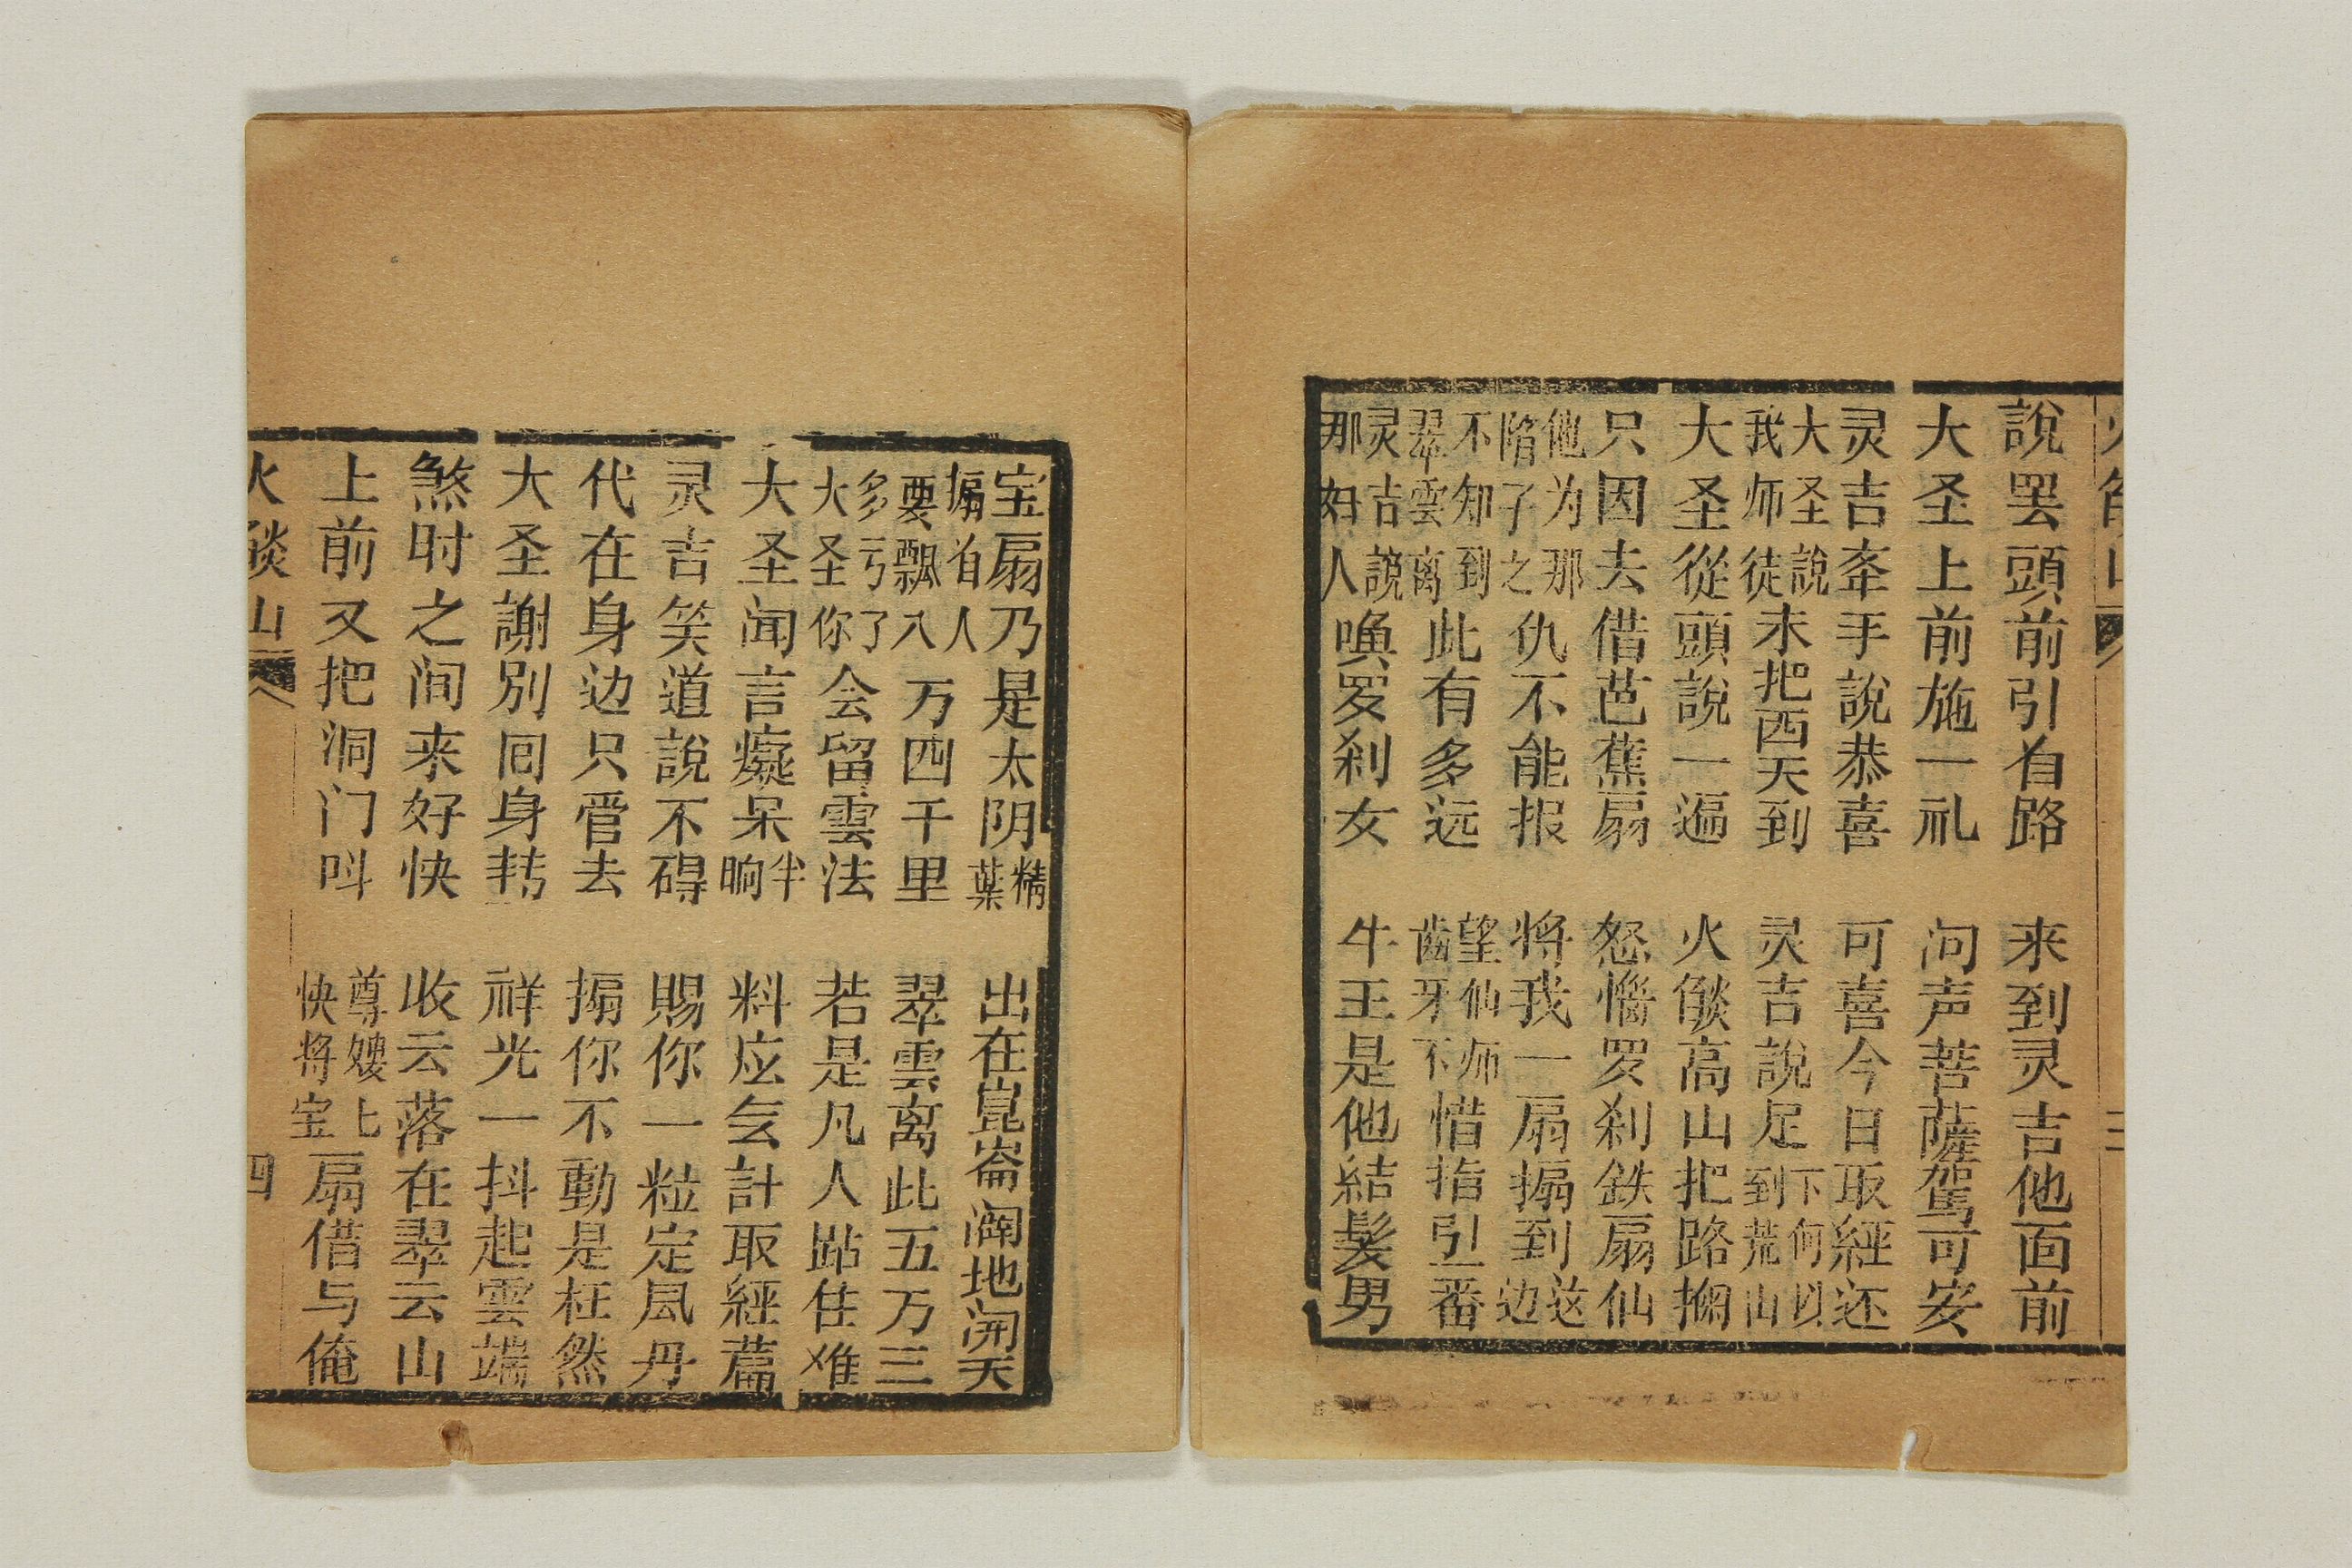 三
說罢頭前引自路　来到灵吉他面前
大圣上前施一礼　问声菩薩驾可安
灵吉牵手說恭喜　可喜今日取經还
大圣說我师徒未把西天到　灵吉說足下何以到荒山
大圣從頭說一遍　火燄高山把路
只因去借芭蕉扇　怒惱罗刹鉄扇仙
他为那陷子之仇不能报　将我一扇搧到这边
不知到翠雲离此有多远　望仙师齿牙不惜指引一番
灵吉說那妇人唤罗刹女　牛王是他結髮男
宝扇乃是太阴精葉　出在崑崙濶地开天
搧自人要飘八万四千里　翠雲离此五万三
多亏了大圣你会留雲法　若是凡人跕住难
大圣闻言癡呆半晌　料应計取經篇
灵吉笑道說不碍　賜你一粒定凨丹
代在身边只管去　搧你不動是枉然
大圣謝别回身转　祥光一抖起雲端
煞时之间来好快　收云落在翠云山
上前又把洞门叫　尊嫂上快将宝扇借与俺
火燄山　四